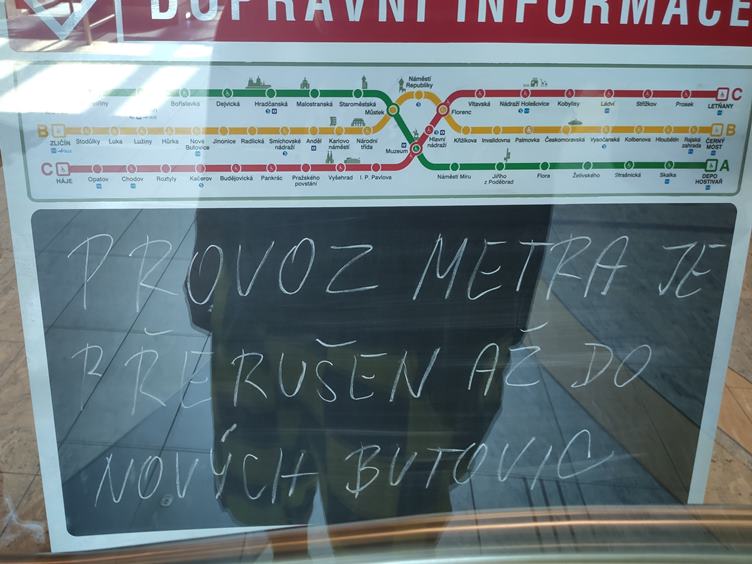 DOPRAVNÍ INFORMACE
Bořislavka Dejvická Hradčanská Malostranská Staroměstská
Můstek
Náměstí Republiky
Florenc
Vltavská Nádraží Holešovice Kobylisy Ládví Střížkov Prosek
LETŇANY
C
B
ZLIČÍN
Stodůlky Luka Lužiny Hůrka Nové Butovice Jinonice Radlická Smíchovské nádraží Anděl Karlovo náměstí Národní třída
Hlavní nádraží
Křižíkova Invalidovna Palmovka Českomoravská Vysočanská Kolbenova Hloubětín Rajská zahrada
ČERNÝ MOST
B
Muzeum
C
HÁJE
Opatov Chodov Roztyly Kačerov Budějovická Pankrác Pražského povstání Vyšehrad I. P. Pavlova
Náměstí Míru Jiřího z Poděbrad Flora Želivského Strašnická Skalka
DEPO HOSTIVAŘ
A
PROVOZ METRA JE
PŘERUŠEN AŽ DO
NOVÝCH BUTOVIC